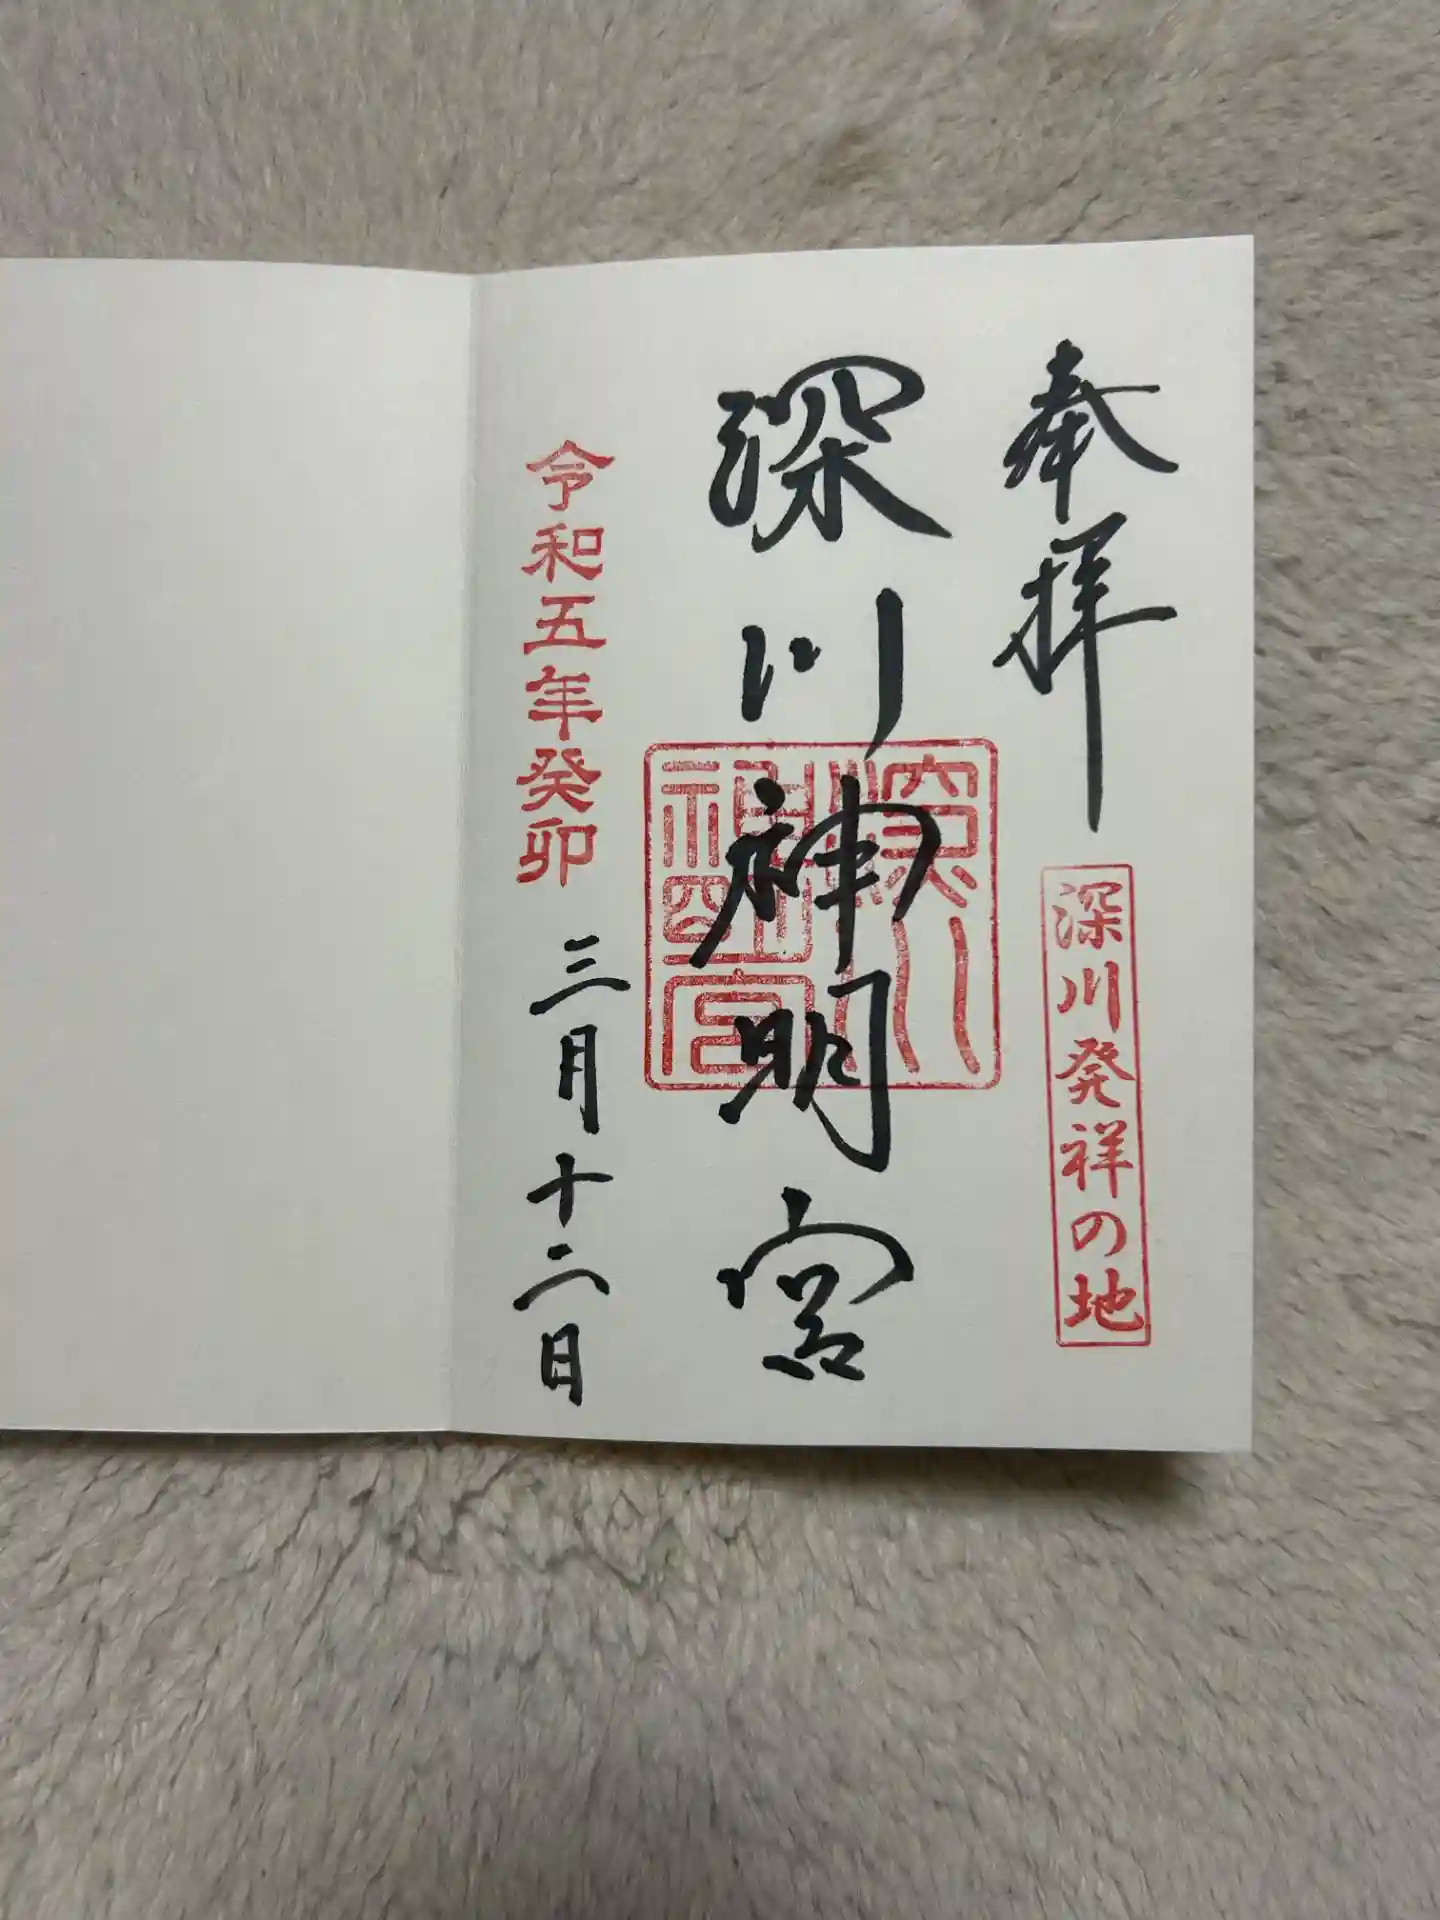 奉拝
深川発祥の地
深川神明宮
深川
神明宮
令和五年癸卯
三月十二日